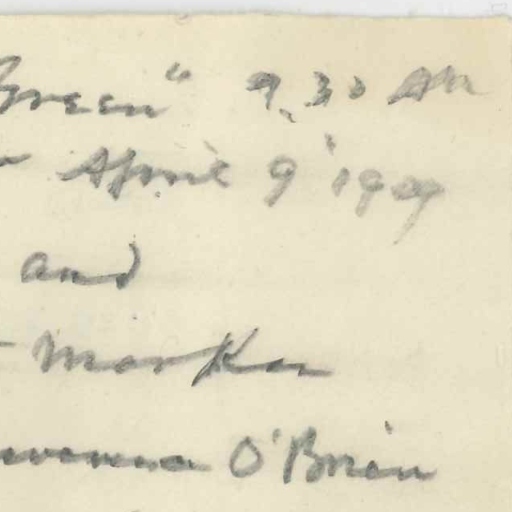 Green" 9.30 AM
April 9' 1909
and
O'Brien